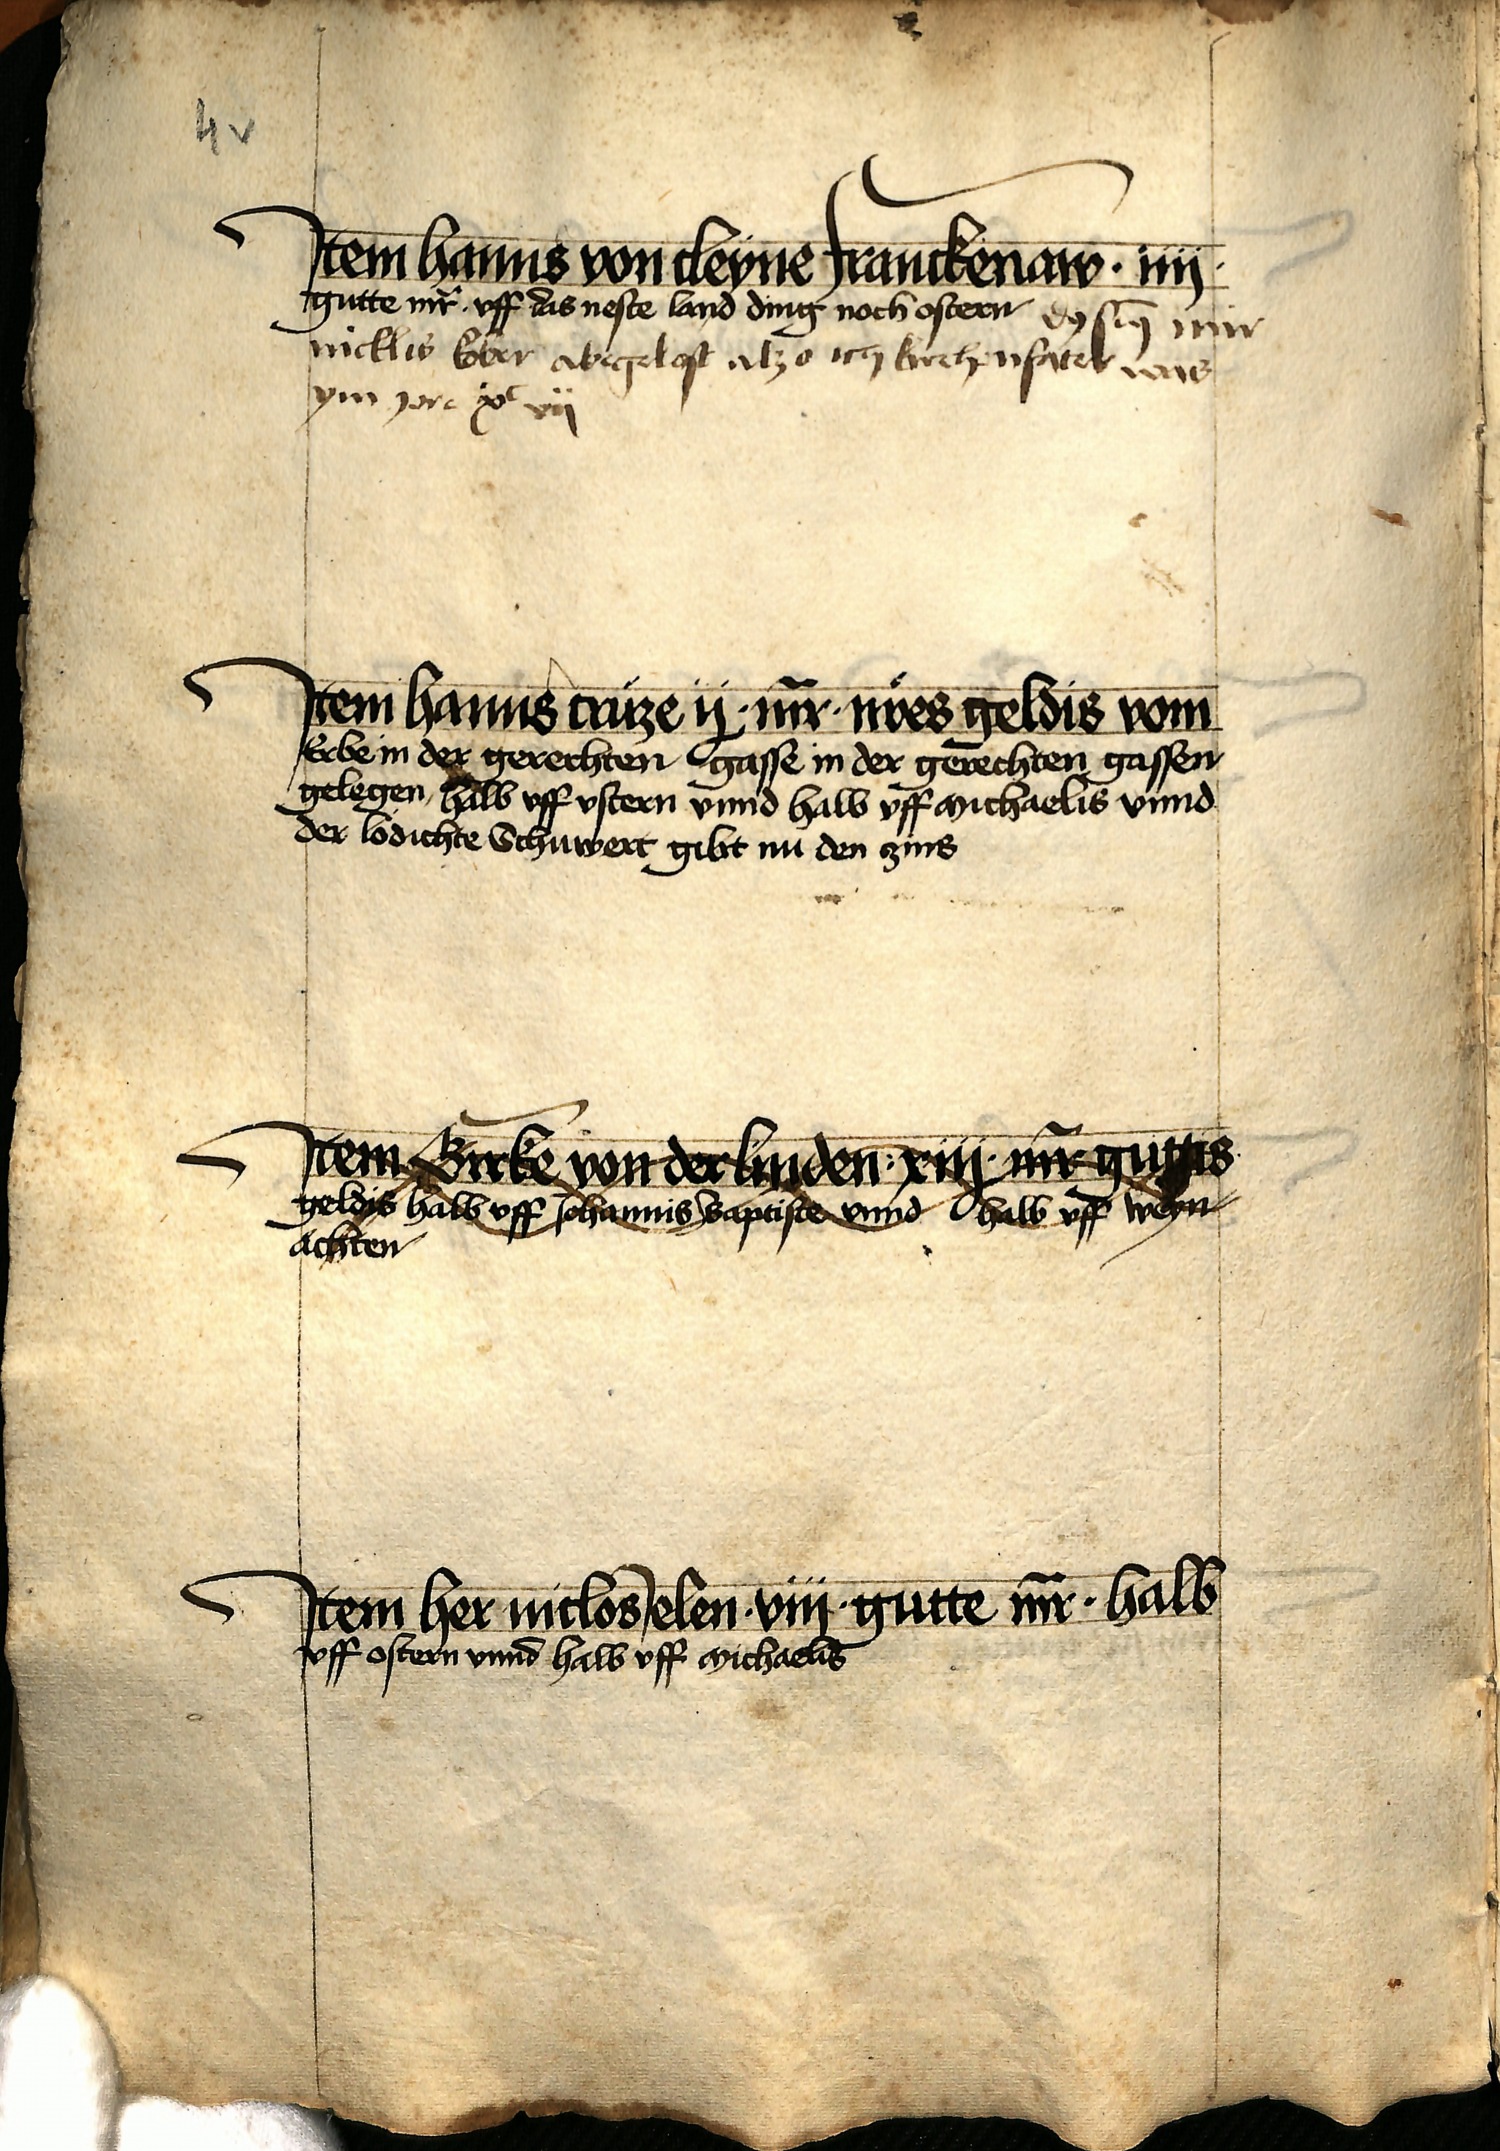 4v
Item hanns von cleyne Franckenaw · iiij ·
gutte mr̃ · vff das neste land ding noch ostern
nicklis Eber abegelost alzo ich kirchenfater was
ym jore xvᶜ vij
Item hanns cruze ij · mr̃ · nŵes geldis vom
Erbe in der gerechten gasse in der gerechten gassen
gelegen halb vff ostern vnnd halb vff Michaelis vnnd
der lodichte Schuwert gibt nu den zins
Item Bircke von der linden · xiij · mr̃ guttis
geldis halb vff Johannis Baptiste vnnd halb vff weyn
achten
Item her niclos Jelen · viij · gutte mr̃ · halb
vff ostern vnnd halb vff Michaelis